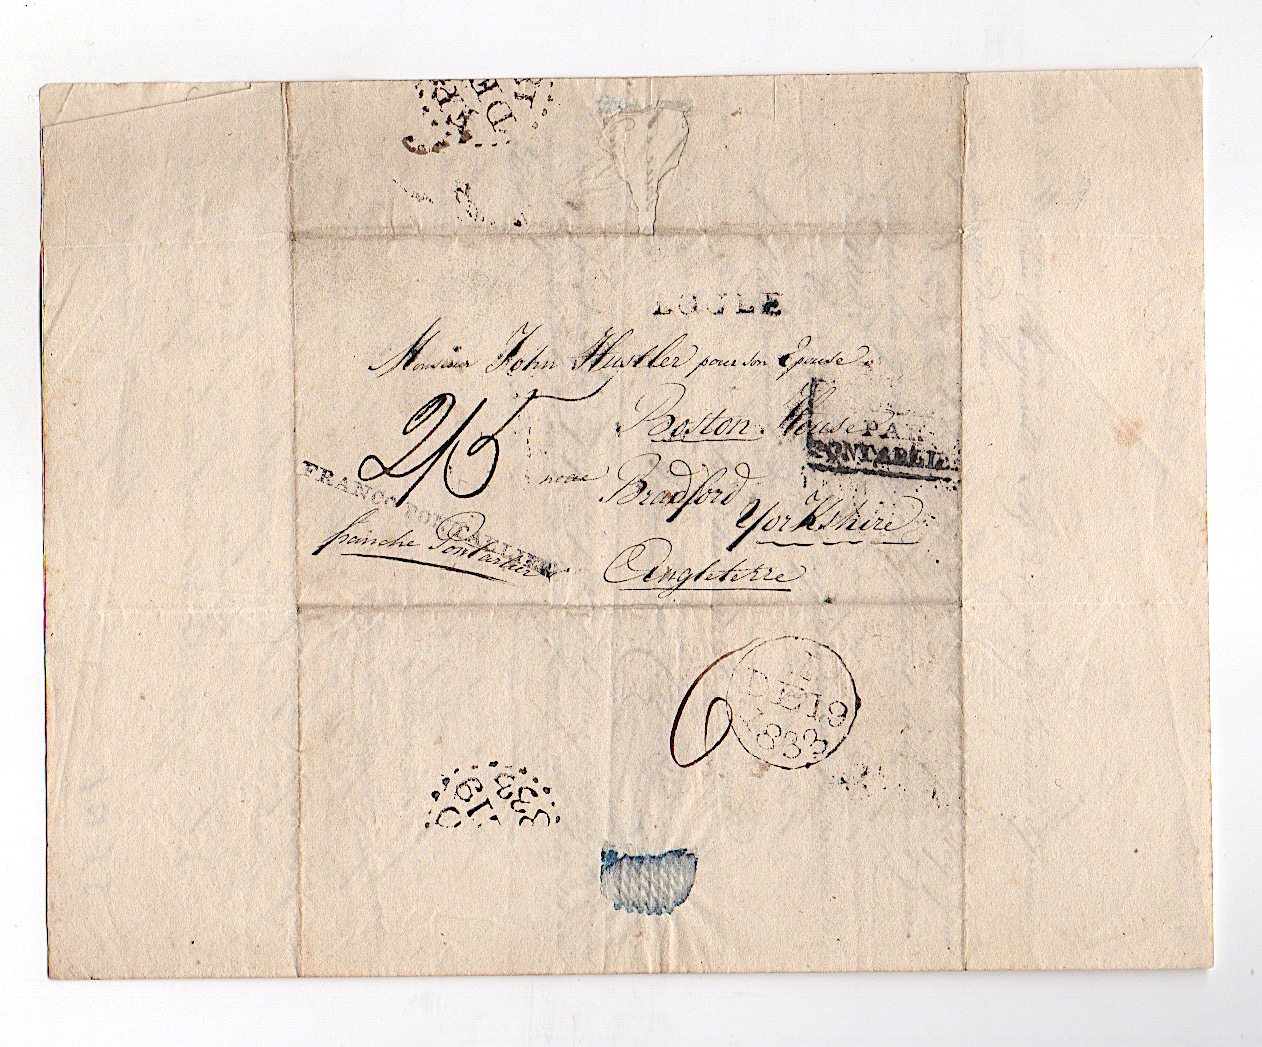 LOCLE
Monsieur John Hustler pour son Epouse
Boston House
PAR
PONTARLIER
2/5
near Bradford
Yorkshire
FRANCO PONTALLIER
franche Pontarlier
Angleterre
6
DE 19
1833
C
19
33